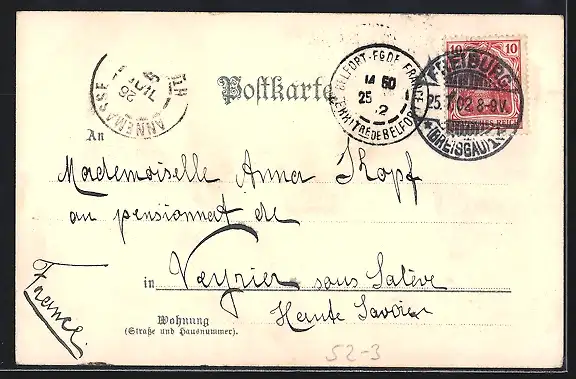 Postkarte
BELFORT-FG DE FRANCE
25
TERRITRE DE BELFORT
10 10
FREIBURG
25. 7. 02 8-9V.
* (BREISGAU) 1 *
ANNEMASSE
26
JUIL
An
Mademoiselle Anna Skopf
au pensionnat de
in Veyrier sous Salève
Haute Savoie
France
Wohnung
(Straße und Hausnummer).
52-3